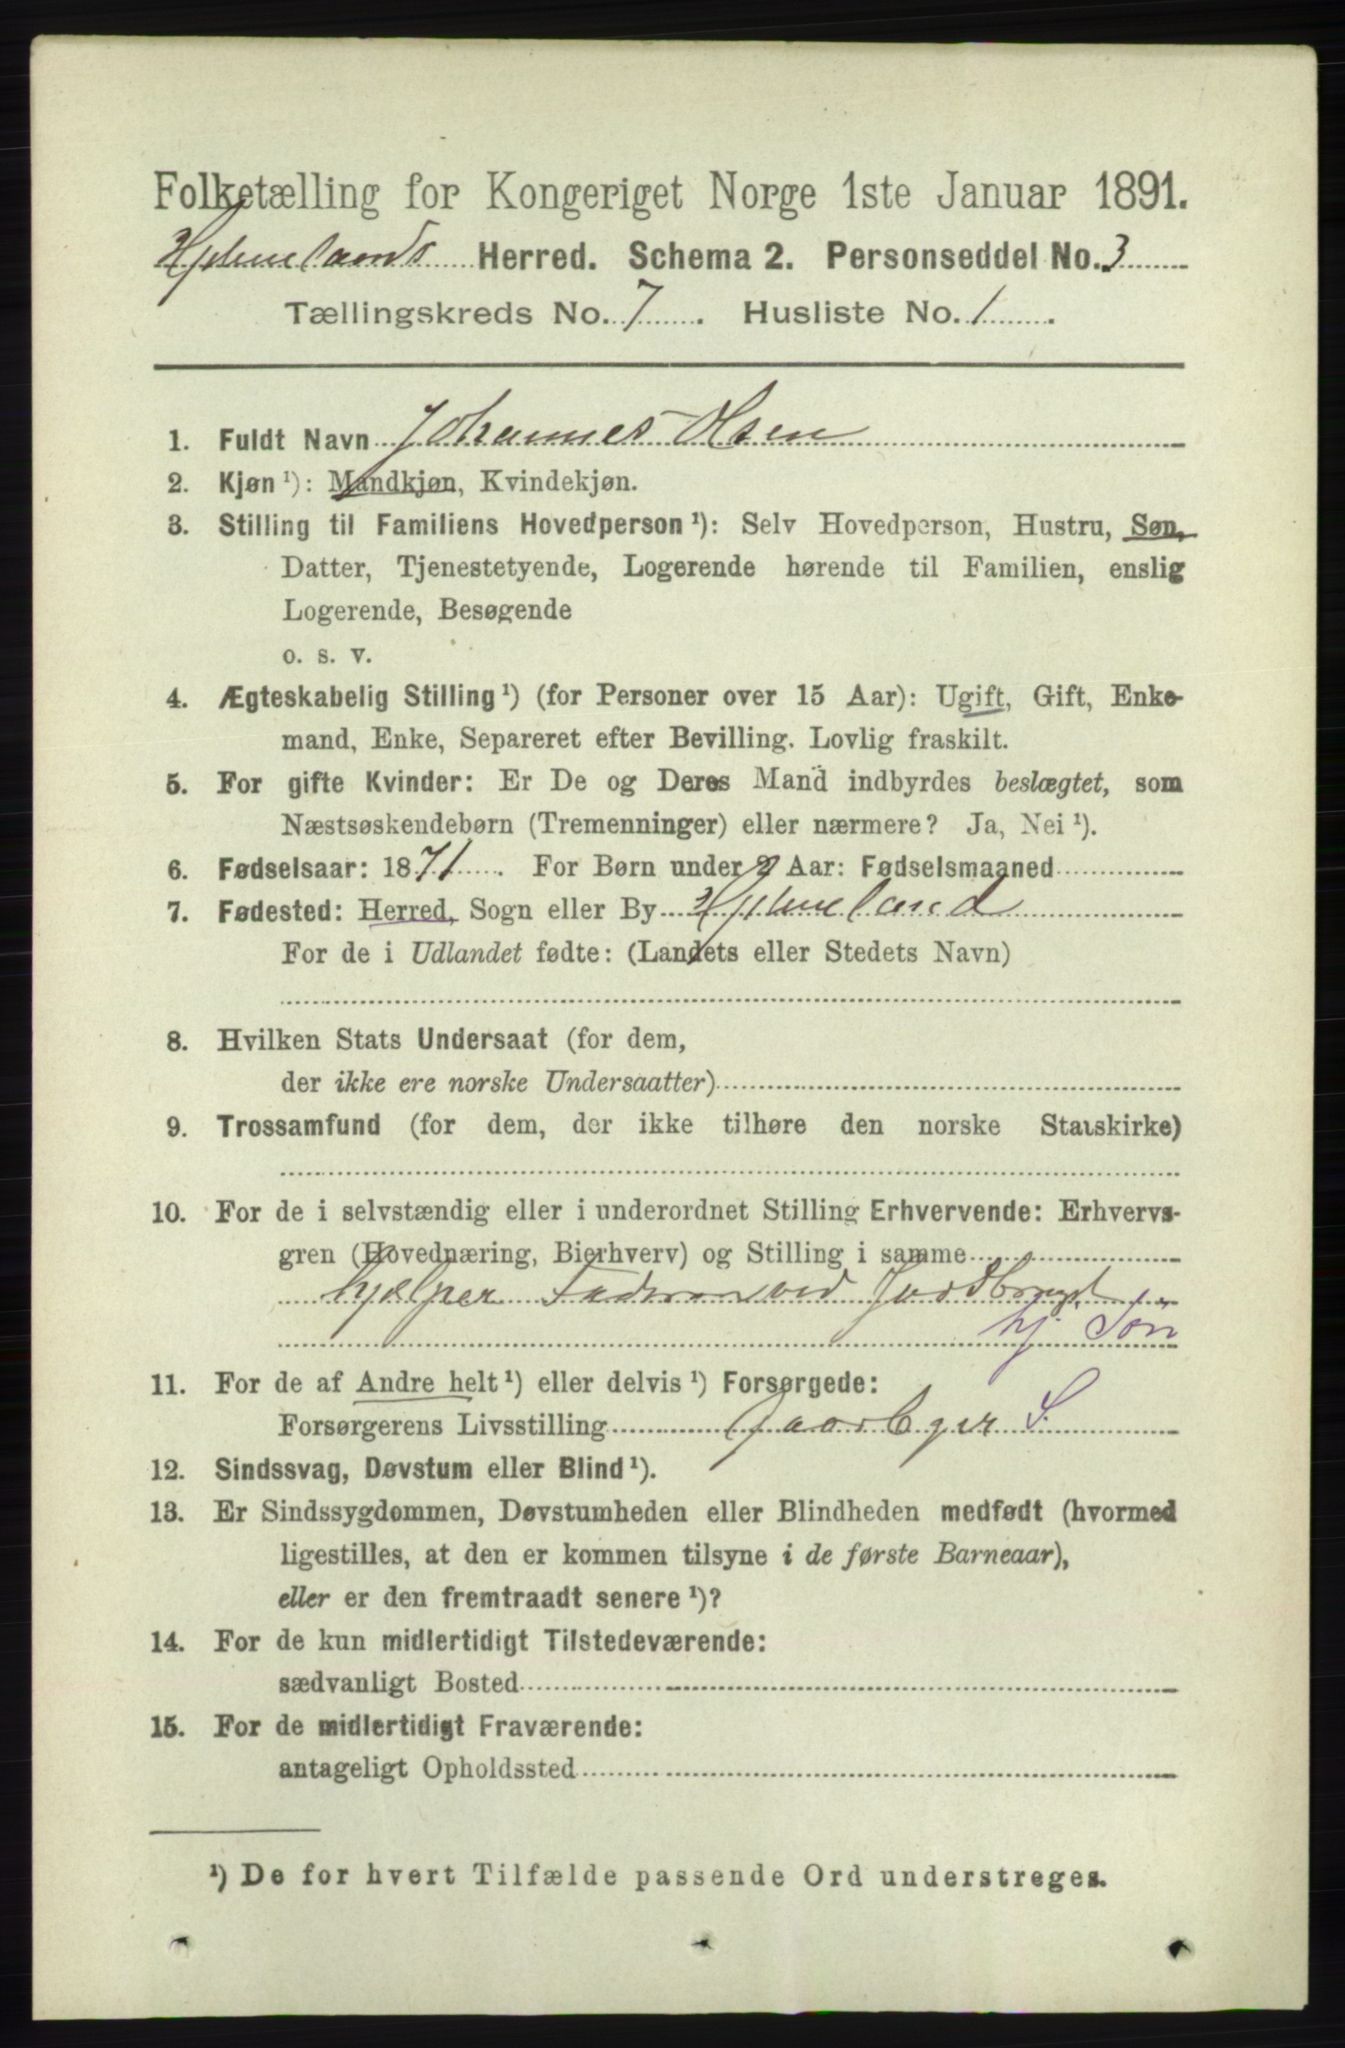 Folketælling for Kongeriget Norge 1ste Januar 1891.
Hjelmelands Herred. Schema 2. Personseddel No. 3
Tællingskreds No. 7. Husliste No. 1.
1. Fuldt Navn Johannes Olsen
2. Kjøn ¹): Mandkjøn, Kvindekjøn.
3. Stilling til Familiens Hovedperson ¹): Selv Hovedperson, Hustru, Søn,
Datter, Tjenestetyende, Logerende hørende til Familien, enslig
Logerende, Besøgende
o. s. v.
4. Ægteskabelig Stilling ¹) (for Personer over 15 Aar): Ugift, Gift, Enke-
mand, Enke, Separeret efter Bevilling. Lovlig fraskilt.
5. For gifte Kvinder: Er De og Deres Mand indbyrdes beslægtet, som
Næstsøskendebørn (Tremenninger) eller nærmere? Ja, Nei ¹).
6. Fødselsaar: 1871. For Børn under 2 Aar: Fødselsmaaned
7. Fødested: Herred, Sogn eller By Hjelmeland
For de i Udlandet fødte: (Landets eller Stedets Navn)
8. Hvilken Stats Undersaat (for dem,
der ikke ere norske Undersaatter)
9. Trossamfund (for dem, der ikke tilhøre den norske Statskirke)
10. For de i selvstændig eller i underordnet Stilling Erhvervende: Erhvervs-
gren (Hovednæring, Bierhverv) og Stilling i samme
hjelper Faderen ved Jordbruget
hj. Søn
11. For de af Andre helt ¹) eller delvis ¹) Forsørgede:
Forsørgerens Livsstilling Gaardejer S.
12. Sindssvag, Døvstum eller Blind ¹).
13. Er Sindssygdommen, Døvstumheden eller Blindheden medfødt (hvormed
ligestilles, at den er kommen tilsyne i de første Barneaar),
eller er den fremtraadt senere ¹)?
14. For de kun midlertidigt Tilstedeværende:
sædvanligt Bosted
15. For de midlertidigt Fraværende:
antageligt Opholdssted
¹) De for hvert Tilfælde passende Ord understreges.